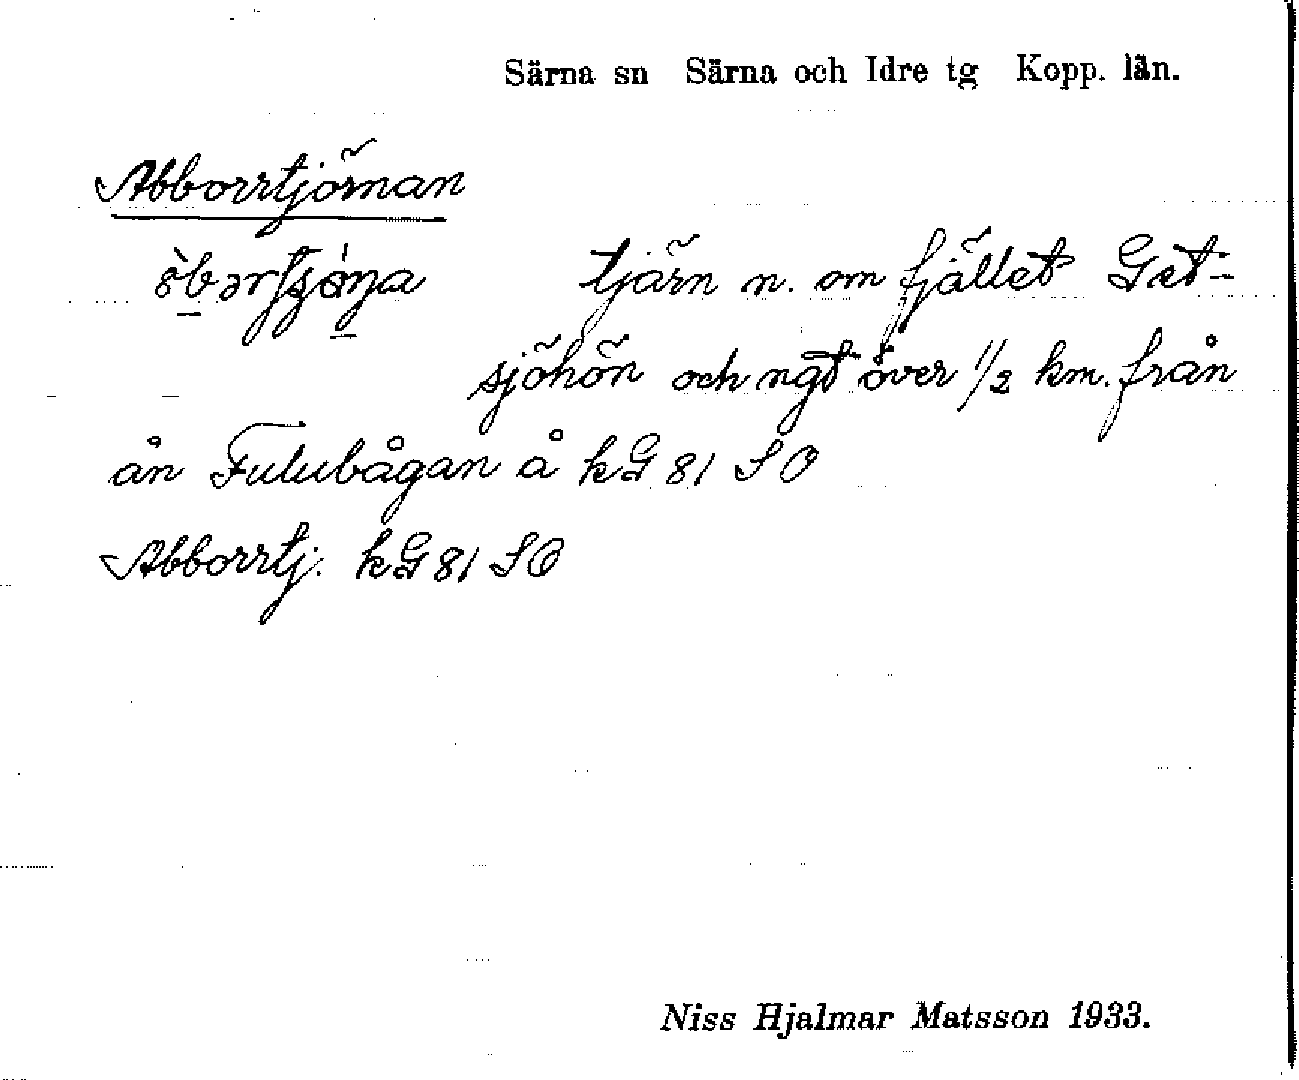 Särna sn Särna och Idre tg Kopp. län.
Abborrtjörnan
tjärn n. om fjället Get-
sjöhön och ngt över 1/2 km. från
ån Fulubågan å kG 81 SO
Abborrtj. kG 81 SO
Niss Hjalmar Matsson 1933.